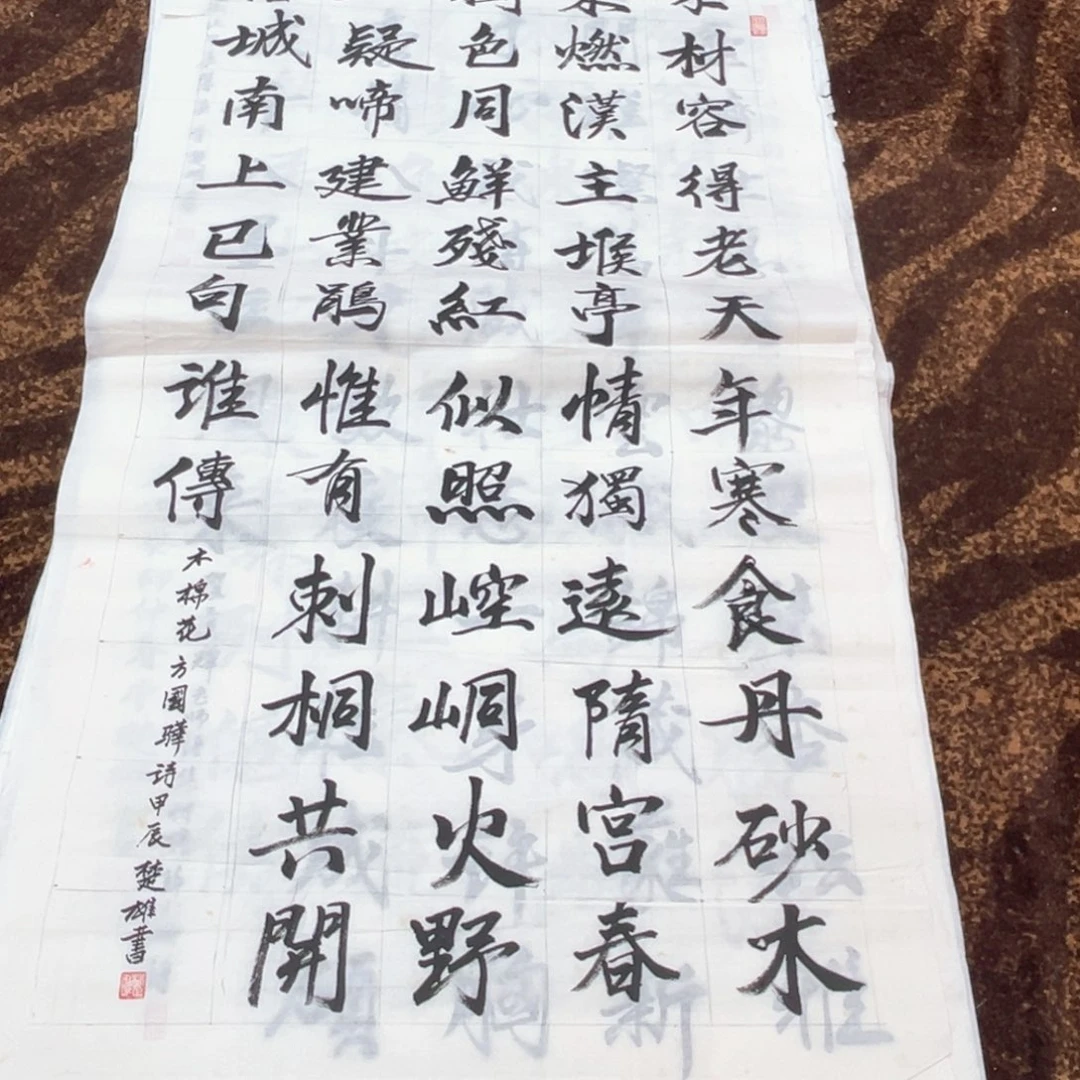 材容得老天年寒食丹砂木
燃漢主堠亭情獨遠隋宮春
色同鮮殘紅似照崆峒火野
疑啼建業鵑惟有刺桐共開
城南上已句誰傳
木棉花方國驊詩甲辰楚雄書